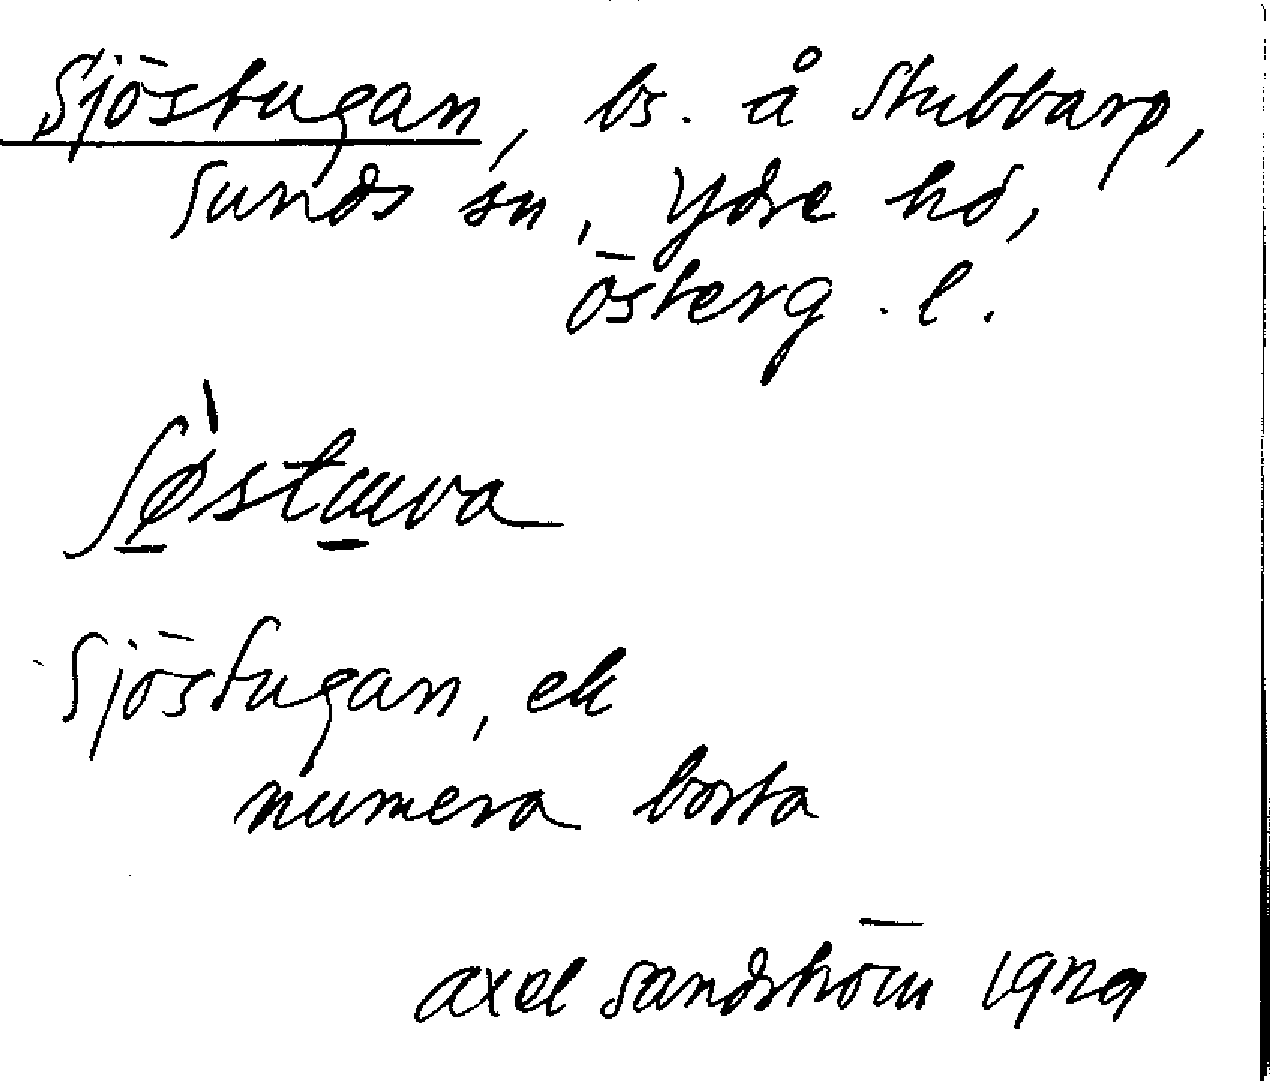 Sjöstugan, bs. å Stubbarp,
Sunds sn, Ydre hd,
Österg. l.
ʃø̀stɯva
Sjöstugan, ek
numera borta
Axel Sandström 1929